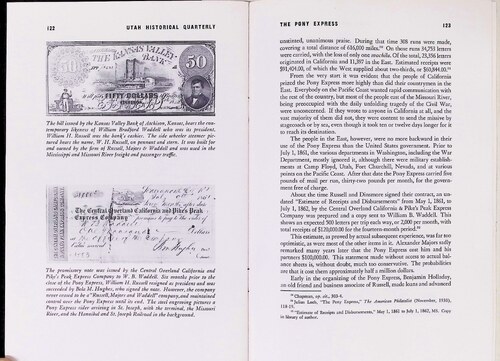 122 UTAH HISTORICAL QUARTERLY
THE KANSAS VALLEY
BANK
50
FIFTY DOLLARS
The bill issued by the Kansas Valley Bank of Atchison, Kansas, bears the con-
temporary likeness of William Bradford Waddell who was its president.
William H. Russell was the bank's cashier. The side wheeler steamer pic-
tured bears the name, W. H. Russell, on pennant and stern. It was built for
and owned by the firm of Russell, Majors & Waddell and was used in the
Mississippi and Missouri River freight and passenger traffic.
The Central Overland California and Pike's Peak
Express Company
The promissory note was issued by the Central Overland California and
Pike's Peak Express Company to W. B. Waddell. Six months prior to the
close of the Pony Express, William H. Russell resigned as president and was
succeeded by Bela M. Hughes, who signed the note. However, the company
never ceased to be a "Russell, Majors and Waddell" company, and maintained
control over the Pony Express until its end. The steel engraving pictures a
Pony Express rider arriving in St. Joseph, with the terminal, the Missouri
River, and the Hannibal and St. Joseph Railroad in the background.
THE PONY EXPRESS 123
unstinted, unanimous praise. During that time 308 runs were made,
covering a total distance of 616,000 miles.
On these runs 34,753 letters
were carried, with the loss of only one mochila. Of the total, 23,356 letters
originated in California and 11,397 in the East. Estimated receipts were
$91,404.00, of which the West supplied about two-thirds, or $60,844.00.
From the very start it was evident that the people of California
prized the Pony Express more highly than did their countrymen in the
East. Everybody on the Pacific Coast wanted rapid communication with
the rest of the country, but most of the people east of the Missouri River,
being preoccupied with the daily unfolding tragedy of the Civil War,
were unconcerned. If they wrote to anyone in California at all, and the
vast majority of them did not, they were content to send the missive by
stagecoach or by sea, even though it took ten or twelve days longer for it
to reach its destination.
The people in the East, however, were no more backward in their
use of the Pony Express than the United States government. Prior to
July 1, 1861, the various departments in Washington, including the War
Department, mostly ignored it, although there were military establish-
ments at Camp Floyd, Utah, Fort Churchill, Nevada, and at various
points on the Pacific Coast. After that date the Pony Express carried five
pounds of mail per run, thirty-two pounds per month, for the govern-
ment free of charge.
About the time Russell and Dinsmore signed their contract, an un-
dated "Estimate of Receipts and Disbursements" from May 1, 1861, to
July 1, 1862, by the Central Overland California & Pike's Peak Express
Company was prepared and a copy sent to William B. Waddell. This
shows an expected 300 letters per trip each way, or 2,000 per month, with
total receipts of $120,000.00 for the fourteen-month period.
This estimate, as proved by actual subsequent experience, was far too
optimistic, as were most of the other items in it. Alexander Majors sadly
remarked many years later that the Pony Express cost him and his
partners $100,000.00. This statement made without access to actual bal-
ance sheets is, without doubt, much too conservative. The probabilities
are that it cost them approximately half a million dollars.
Early in the organizing of the Pony Express, Benjamin Holladay,
an old friend and business associate of Russell, made loans and advanced
Chapman, op. cit., 303-4.
"The Pony Express," The American Philatelist (November, 1950),
118-19.
"Estimate of Receipts and Disbursements," May 1, 1861 to July 1, 1862, MS. Copy
in library of author.